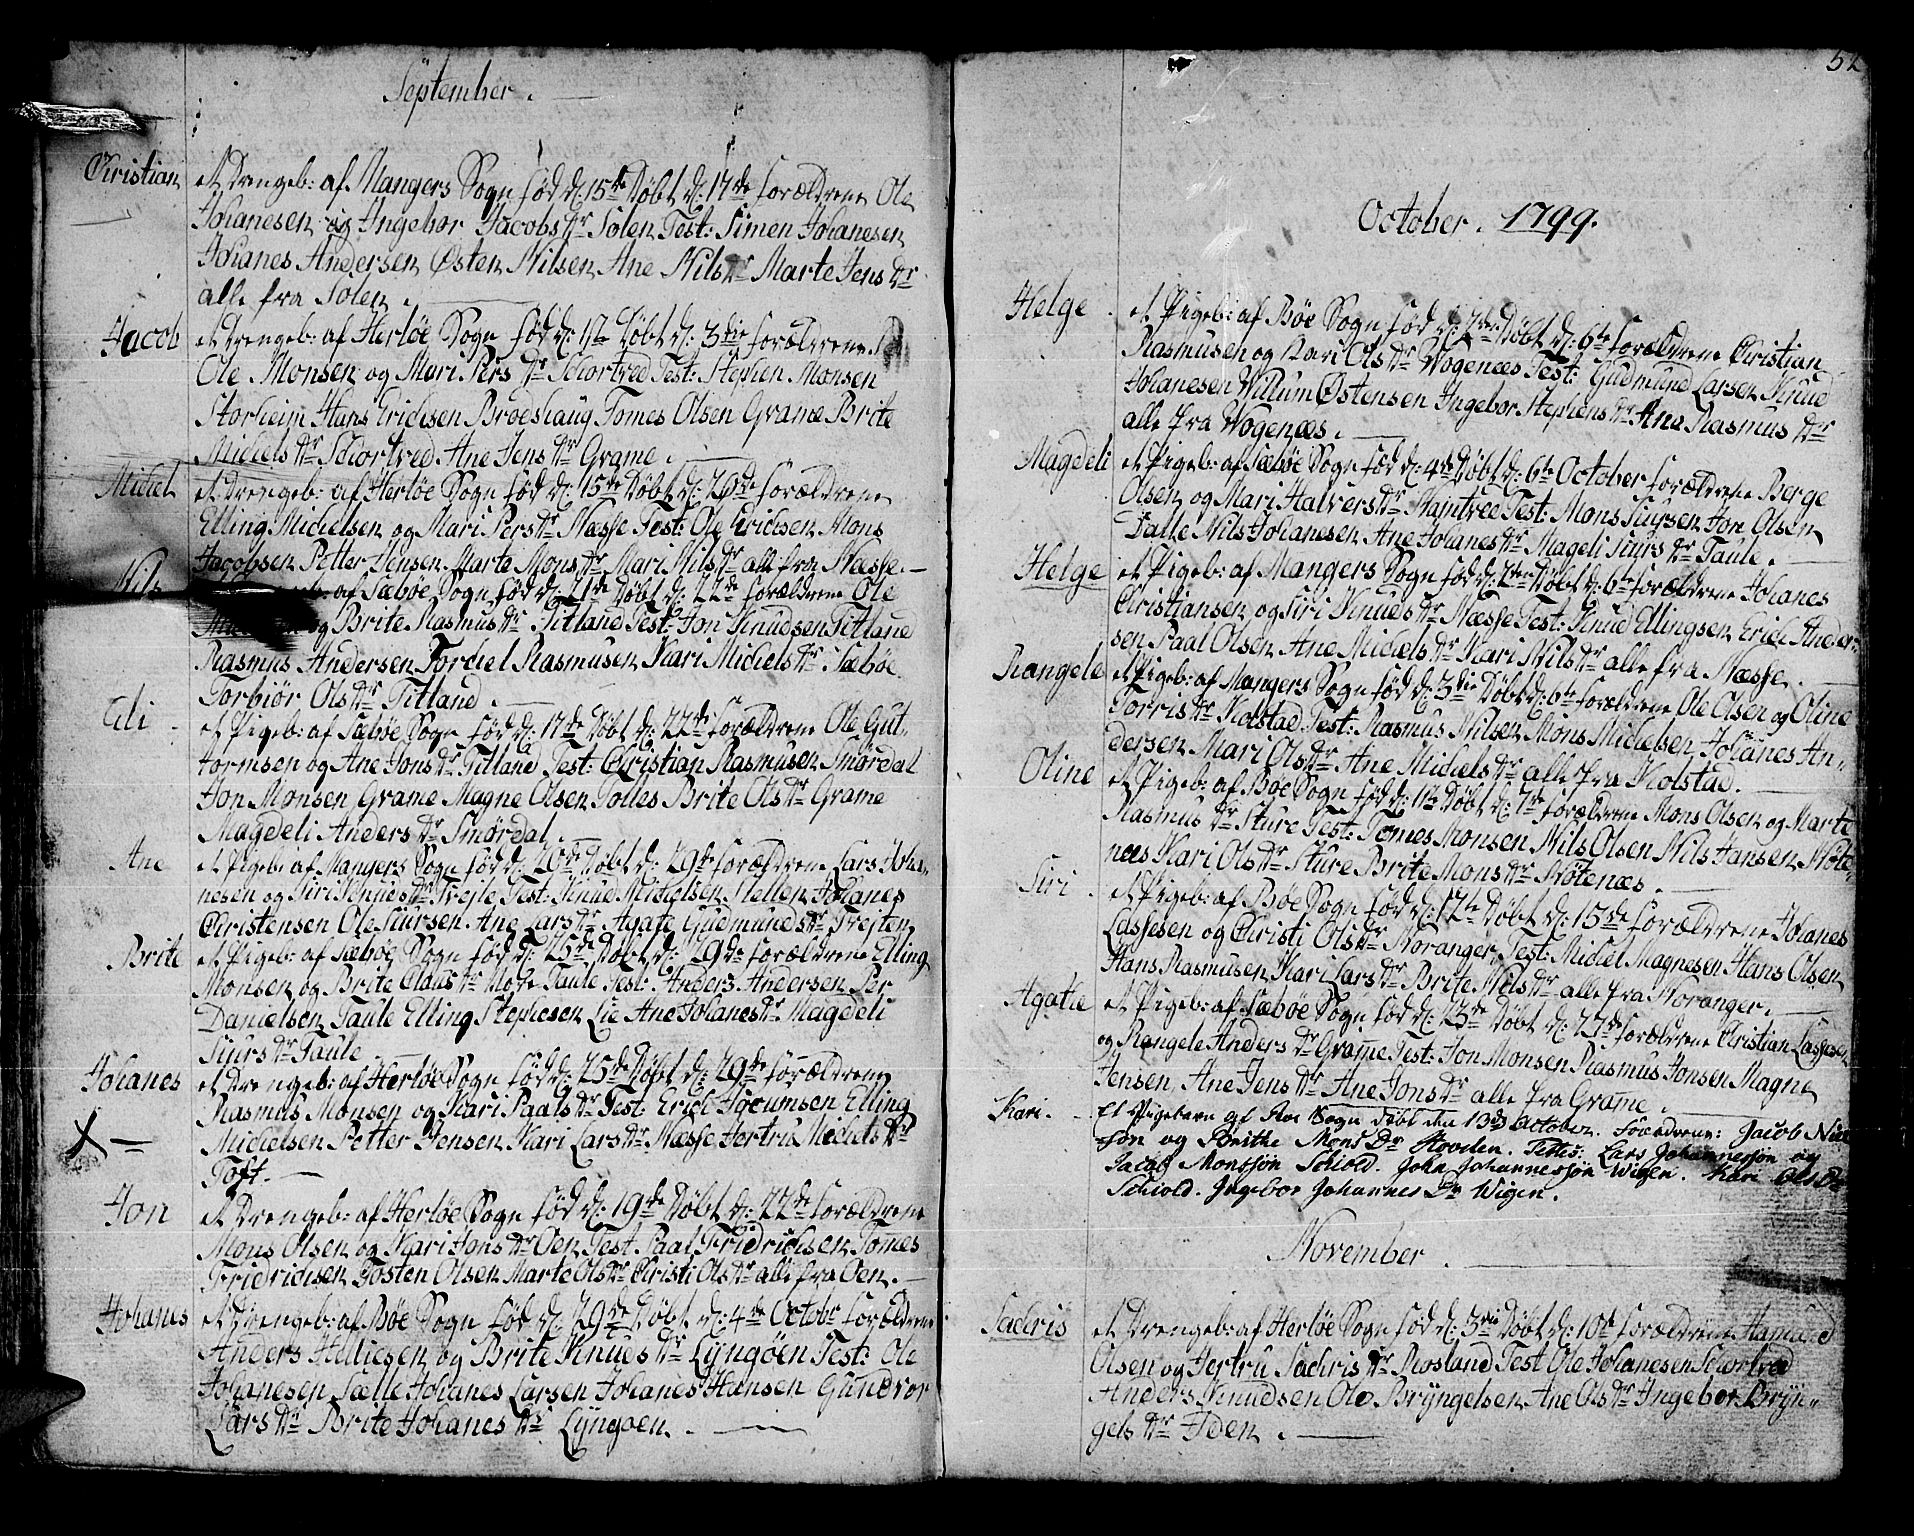 September.
Christian et Drengeb: af Mangers Sogn fød d: 15de Døbt d: 17de forældrene Ole
Johanesen og Ingebor Jacobs dr Solen Test: Simen Johanesen
Johanes Andersen Østen Nilsen Ane Nils dr Marte Jens dr
alle fra Solen.
Jacob et Drengeb: af Herløe Sogn fød d: 1te Døbt d: 3die forældrene
Ole Monsen og Mari Pers dr Schortred Test: Stephen Monsen
Storheim Hans Erichsen Brodshaug Tomes Olsen Grame Brite
Michels dr Schortred Ane Jens dr Grame.
Michel et Drengeb: af Herløe Sogn fød d: 15de Døbt d: 20de forældrene
Elling Michelsen og Mari Pers dr Næsse Test: Ole Erichsen Mons
Jacobsen Petter Jensen Marte Mons dr Mari Nils dr alle fra Næsse.
Nils af Sæbøe Sogn fød d: 21de Døbt d: 22de forældrene Ole
og Brite Rasmus dr Titland Test: Jon Knudsen Titland
Rasmus Andersen Torchel Rasmusen Kari Michels dr Sæbøe
Torbiør Ols dr Titland.
Eli et Pigeb: af Sæbøe Sogn fød d: 17de Døbt d: 22de forældrene Ole Gut-
tormsen og Ane Jons dr Titland Test: Christian Rasmusen Smørdal
Jon Monsen Grame Magne Olsen Tolles Brite Ols dr Grame
Magdeli Anders dr Smørdal.
Ane et Pigeb: af Mangers Sogn fød d: 26de Døbt d: 29de forældrene Lars Joha-
nesen og Siri dr Trejte Test: Knud Michelsen Hellen Johanes
Christensen Ole Siursen Ane Lars dr Agate Gudmunds dr Trejten
Brite et Pigeb: af Sæbøe Sogn fød d: 25de Døbt d: 29de forældrene Elling
Monsen og Brite Claus dr Taule Test: Anders Andersen Per
Danielsen Taule Elling Stephesen Lie Ane Johanes dr Magdeli
Siurs dr Taule
Johanes et Drengeb: af Herløe Sogn fød d: 25de Døbt d: 29de forældrene
Rasmus Monsen og Kari Paals dr Test: Erich Elling
X — Michelsen Petter Jensen Kari Lars dr Næsse Jertru Michels dr
Toft.
Jon et Drengeb: af Herløe Sogn fød d: 19de Døbt d: 22de forældrene
Mons Olsen og Kari Jons dr Oen Test. Paal Fridrichsen Tomes
Fridrichsen Tosten Olsen Marte Ols dr Christi Ols dr alle fra Oen.
Johanes et Drengeb: af Bøe Sogn fød d: 29de Døbt d: 4de Octobr forældrene
Anders Hellicsen og Brite Knuds dr Lyngøen Test: Ole
Johanesen Sælle Johanes Larsen Johanes Hansen Gundvor
Lars dr Brite Johanes dr Lyngoen.
52
October. 1799.
Helge et Pigeb: af Bøe Sogn fød d: 2den Døbt d: 6te forældrene Christian
Rasmusen og Kari Ols dr Wogenæs Test: Gudmund Larsen Knud
Johanesen Willum Østensen Ingebor Stephens dr Ane Rasmus dr
alle fra Wogenæs.
Magdeli et Pigeb: af Sæbøe Sogn fød d: 4de Døbt d: 6te October forældrene Berge
Olsen og Mari Halvers dr Test: Mons Siursen Jon Olsen
Dalle Nils Johanesen Ane Johanes dr Mageli Siurs dr Taule.
Helge et Pigeb: af Mangers Sogn fød d: 2den Døbt d: 6te forældrene Johanes
Christiansen og Siri Knuds dr Næsse Test: Knud Ellingsen Erich Ander-
sen Paal Olsen Ane Michels dr Kari Nils dr alle fra Næsse.
Rangele et Pigeb: af Mangers Sogn fød d: 3die Døbt d: 6te forældrene Ole Olsen og Oline
Torris dr Kolstad Test: Rasmus Nilsen Mons Michelsen Johanes An-
dersen Mari Ols dr Ane Michels dr alle fra Kolstad.
Oline et Pigeb: af Bøe Sogn fød d: 1te Døbt d: 7de forældrene Mons Olsen og Marte
Rasmus dr Sture Test: Tomes Monsen Nils Olsen Nils Jansen Nøte-
næs Kari Ols dr Sture Brite Mons dr Nøtenæs.
Siri et Pigeb: af Bøe Sogn fød d: 12te Døbt d: 15de forældrene Johanes
Lassesen og Christi Ols dr Noranger Test: Michel Magnesen Hans Olsen
Hans Rasmusen Kari Lars dr Brite Nils dr alle fra Noranger.
Agathe et Pigeb: af Sæbøe Sogn fød d: 23de Døbt d: 27de forældrene Christian Lassesen
og Rangele Anders dr Grame Test: Jon Monsen Rasmus Jonsen Magne
Jensen Ane Jens dr Ane Jons dr alle fra Grame.
Kari. Et Pigebarn af Sogn Døbt den 13de October. Forældrene: Jacob
søn og Brithe Mons Dr Hovden. Testes: Lars Johannessøn og
Jacob Monssøn Schiold. John Johannessøn Wigen. Kari Ols Dr
Schiold. Ingebor Johannes Dr Wigen.
November.
Sachris et Drengeb: af Herløe Sogn fød d: 3die Døbt d: 10de forældrene Hamund
Olsen og Jertru Sachris dr Rosland Test Ole Johanesen Schortred
Anders Knudsen Ole Bryngelsen Ane Ols dr Ingebor Bryn-
gels dr Iden.